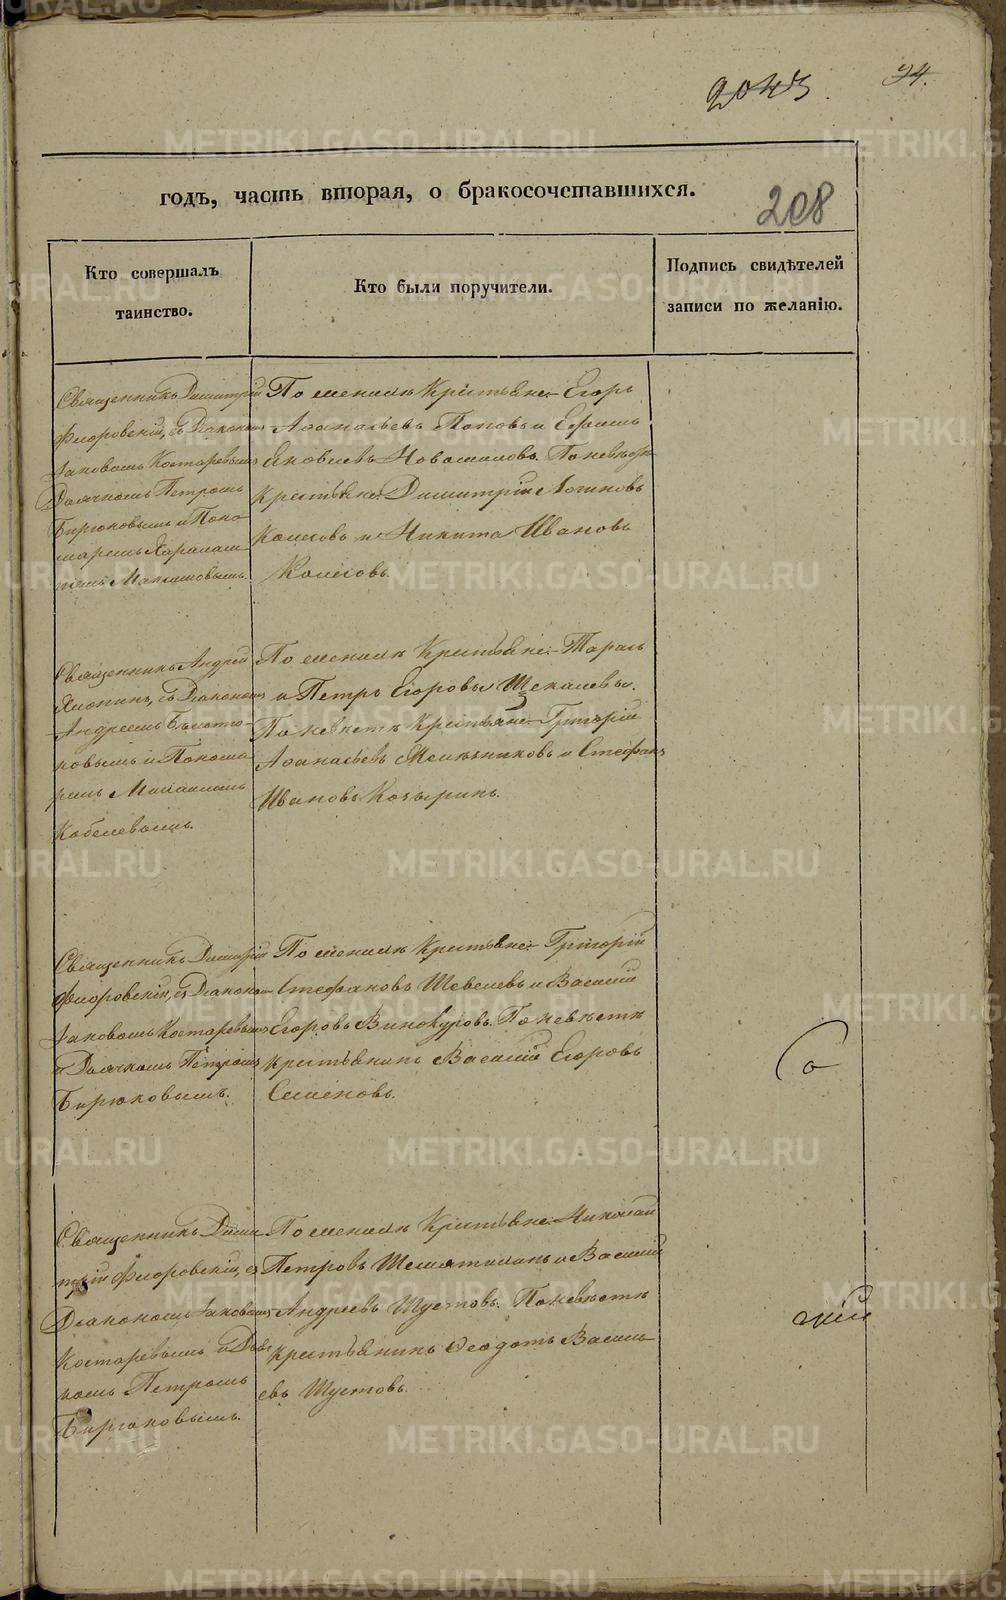 2043.
94.
годъ, часть вторая, о бракосочетавшихся.
208
Кто совершалъ
таинство.
Кто были поручители.
Подпись свидѣтелей
записи по желанію.
Священникъ Димитрій
Флоровскій, съ Діакономъ
Іаковомъ Костаревымъ
Дьячкомъ Петромъ
Бирюковымъ и Поно-
маремъ Харалам-
Максимовымъ.
По женихѣ Крестьяне: Егоръ
Аѳанасьевъ Поповъ и Ефимъ
Яковлевъ Новоселовъ. По невѣстѣ
крестьяне: Димитрій Логиновъ
и Никита Ивановъ
Священникъ Андрей
съ Діакономъ
Андреемъ
и Понома-
ремъ
По женихѣ Крестьяне: Тарасъ
и Петръ Егоровы Щекалевы.
По невѣстѣ Крестьяне: Григорій
Аѳанасьевъ Мельниковъ и Стефанъ
Ивановъ Козыринъ.
Священникъ Димитрій
Флоровскій, съ Діакономъ
Іаковомъ Костаревымъ
и Дьячкомъ Петромъ
Бирюковымъ.
По женихѣ Крестьяне: Григорій
Стефановъ Шевелевъ и Василій
Егоровъ Винокуровъ. По невѣстѣ
крестьянинъ Василій Егоровъ
Семеновъ.
Священникъ Дими-
трій Флоровскій, съ
Діакономъ Іаковомъ
Костаревымъ и Дьяч-
комъ Петромъ
Бирюковымъ.
По женихѣ Крестьяне: Николай
Петровъ и Василій
Андреевъ Шустовъ. По невѣстѣ
крестьянинъ Ѳеодотъ Василь-
евъ Шустовъ.
METRIKI.GASO-URAL.RU